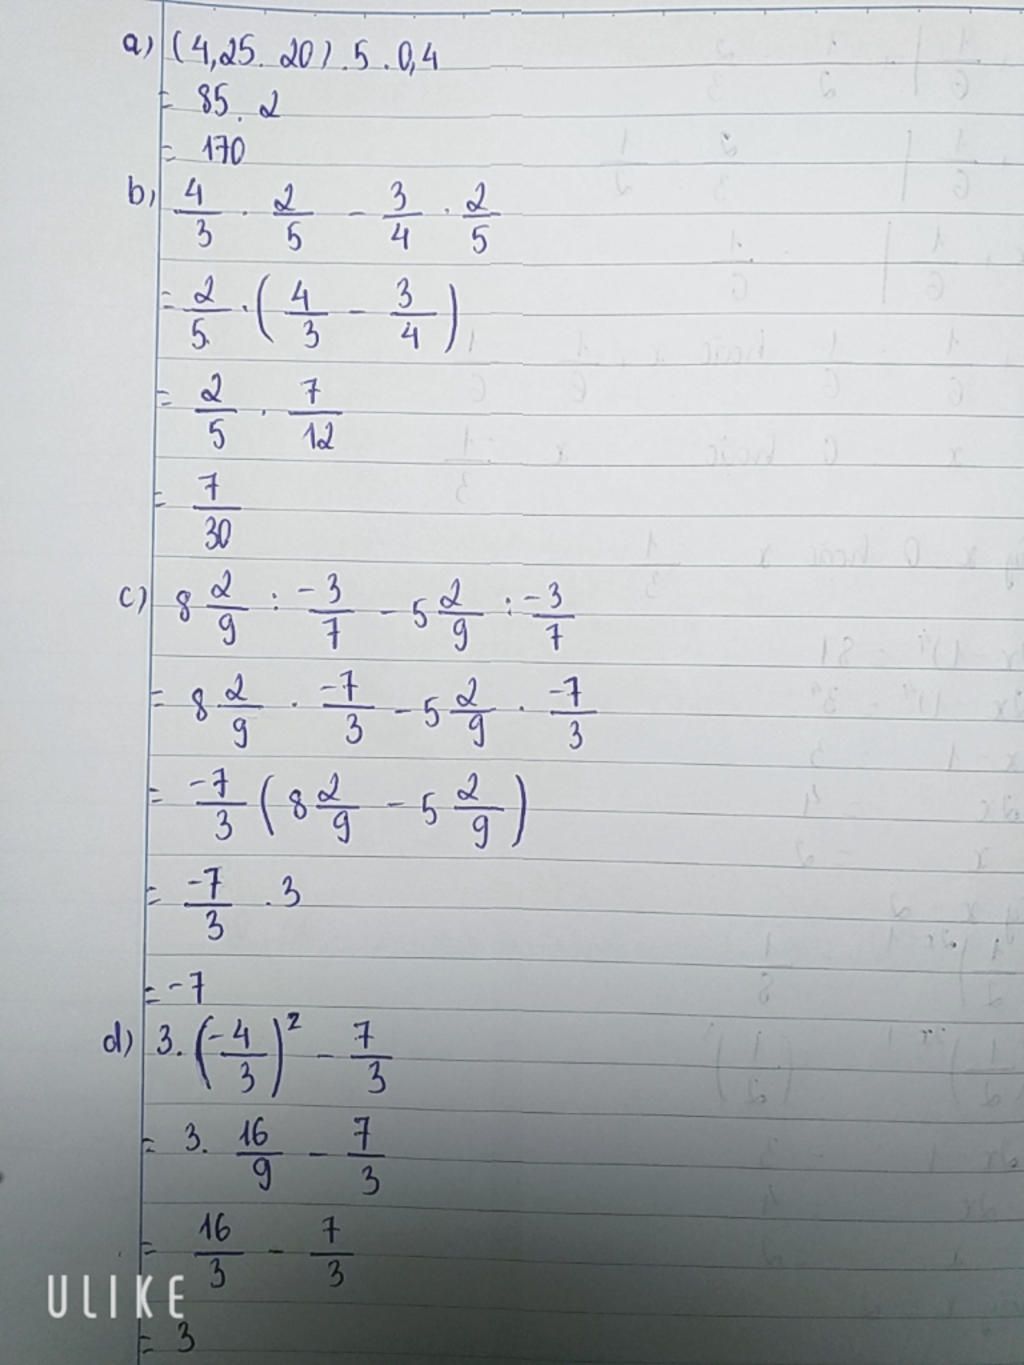 a) (4,25. 20) .5 .0,4
= 85. 2
= 170
b) 4/3 . 2/5 - 3/4 . 2/5
= 2/5 . (4/3 - 3/4)
= 2/5 . 7/12
= 7/30
c) 8 2/9 : -3/7 - 5 2/9 : -3/7
= 8 2/9 . -7/3 - 5 2/9 . -7/3
= -7/3 (8 2/9 - 5 2/9)
= -7/3 .3
= -7
d) 3. (-4/3)² - 7/3
= 3. 16/9 - 7/3
= 16/3 - 7/3
= 3
ULIKE